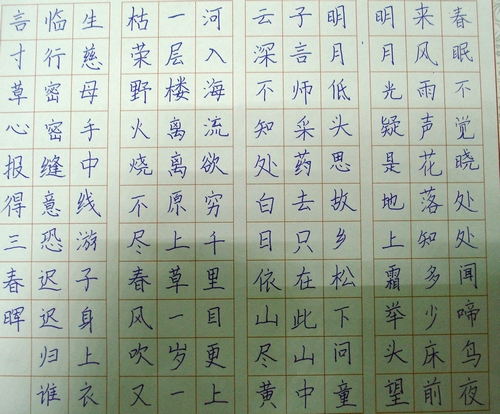 春眠不觉晓处处闻啼鸟夜
来风雨声花落知多少床前
明月光疑是地上霜举头望
明月低头思故乡松下问童
子言师采药去只在此山中
云深不知处白日依山尽黄
河入海流欲穷千里目更上
一层楼离离原上草一岁一
枯荣野火烧不尽春风吹又
生慈母手中线游子身上衣
临行密密缝意恐迟迟归谁
言寸草心报得三春晖